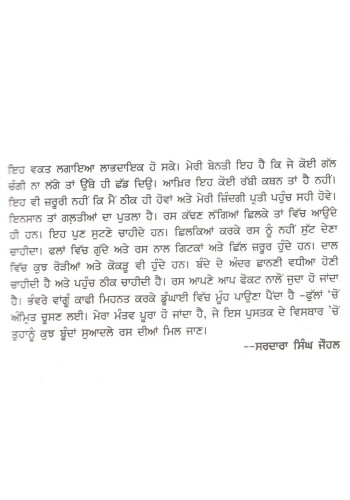 ਇਹ ਵਕਤ ਲਗਾਇਆ ਲਾਭਦਾਇਕ ਹੋ ਸਕੇ। ਮੇਰੀ ਬੇਨਤੀ ਇਹ ਹੈ ਕਿ ਜੇ ਕੋਈ ਗੱਲ
ਚੰਗੀ ਨਾ ਲੱਗੇ ਤਾਂ ਉਥੇ ਹੀ ਛੱਡ ਦਿਉ। ਆਖ਼ਿਰ ਇਹ ਕੋਈ ਰੱਬੀ ਕਥਨ ਤਾਂ ਹੈ ਨਹੀਂ।
ਇਹ ਵੀ ਜ਼ਰੂਰੀ ਨਹੀਂ ਕਿ ਮੈਂ ਠੀਕ ਹੀ ਹੋਵਾਂ ਅਤੇ ਮੇਰੀ ਜ਼ਿੰਦਗੀ ਪ੍ਰਤੀ ਪਹੁੰਚ ਸਹੀ ਹੋਵੇ।
ਇਨਸਾਨ ਤਾਂ ਗਲ਼ਤੀਆਂ ਦਾ ਪੁਤਲਾ ਹੈ। ਰਸ ਕੱਢਣ ਲੱਗਿਆਂ ਛਿਲਕੇ ਤਾਂ ਵਿੱਚ ਆਉਂਦੇ
ਹੀ ਹਨ। ਇਹ ਪੁਣ ਸੁਟਣੇ ਚਾਹੀਦੇ ਹਨ। ਛਿਲਕਿਆਂ ਕਰਕੇ ਰਸ ਨੂੰ ਨਹੀਂ ਸੁੱਟ ਦੇਣਾ
ਚਾਹੀਦਾ। ਫਲਾਂ ਵਿੱਚ ਗੁੱਦੇ ਅਤੇ ਰਸ ਨਾਲ ਗਿਟਕਾਂ ਅਤੇ ਛਿੱਲ ਜ਼ਰੂਰ ਹੁੰਦੇ ਹਨ। ਦਾਲ
ਵਿੱਚ ਕੁਝ ਰੋੜੀਆਂ ਅਤੇ ਕੋਕੜੂ ਵੀ ਹੁੰਦੇ ਹਨ। ਬੰਦੇ ਦੇ ਅੰਦਰ ਛਾਨਣੀ ਵਧੀਆ ਹੋਣੀ
ਚਾਹੀਦੀ ਹੈ ਅਤੇ ਪਹੁੰਚ ਠੀਕ ਚਾਹੀਦੀ ਹੈ। ਰਸ ਆਪਣੇ ਆਪ ਫੋਕਟ ਨਾਲੋਂ ਜੁਦਾ ਹੋ ਜਾਂਦਾ
ਹੈ। ਭੰਵਰੇ ਵਾਂਗੂੰ ਕਾਫੀ ਮਿਹਨਤ ਕਰਕੇ ਡੂੰਘਾਈ ਵਿੱਚ ਮੂੰਹ ਪਾਉਣਾ ਪੈਂਦਾ ਹੈ -ਫੁੱਲਾਂ 'ਚੋਂ
ਅੰਮ੍ਰਿਤ ਚੂਸਣ ਲਈ। ਮੇਰਾ ਮੰਤਵ ਪੂਰਾ ਹੋ ਜਾਂਦਾ ਹੈ, ਜੇ ਇਸ ਪੁਸਤਕ ਦੇ ਵਿਸਥਾਰ 'ਚੋਂ
ਤੁਹਾਨੂੰ ਕੁਝ ਬੂੰਦਾਂ ਸੁਆਦਲੇ ਰਸ ਦੀਆਂ ਮਿਲ ਜਾਣ।
--ਸਰਦਾਰਾ ਸਿੰਘ ਜੌਹਲ